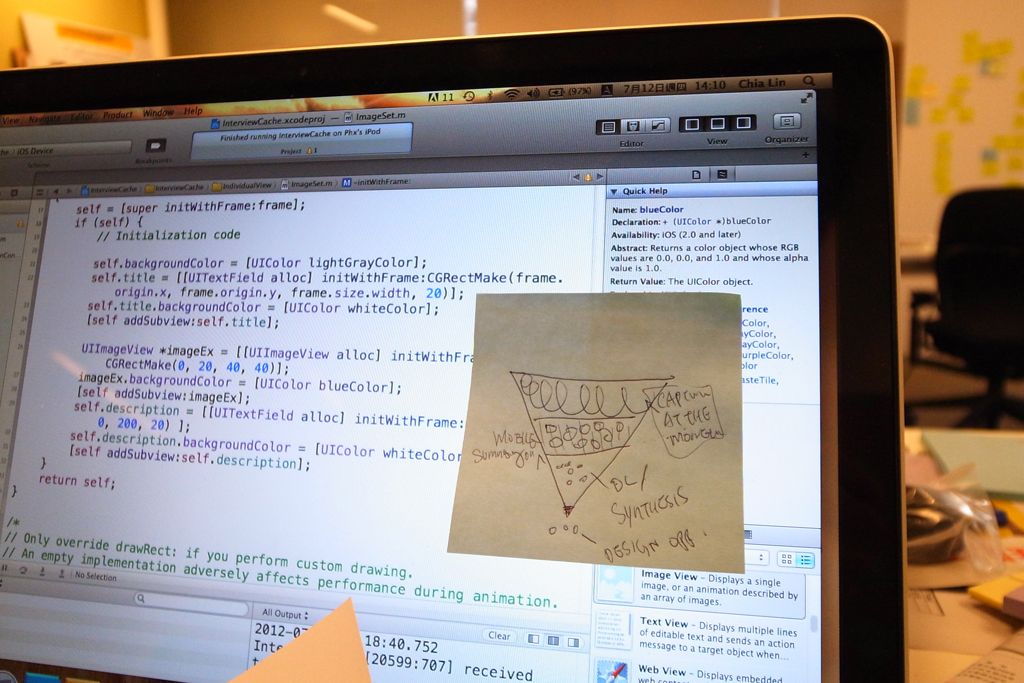 View Navigate Editor Product Window Help
11 (97%) A 7月12日 14:10 Chia Lin
InterviewCache.xcodeproj — ImageSet.m
iOS Device
Breakpoints
Finished running InterviewCache on Phx's iPod
Project 1
Editor
View
Organizer
InterviewCache InterviewCache IndividualView ImageSet.m M -initWithFrame:
self = [super initWithFrame:frame];
if (self) {
// Initialization code
self.backgroundColor = [UIColor lightGrayColor];
self.title = [[UITextField alloc] initWithFrame:CGRectMake(frame.
origin.x, frame.origin.y, frame.size.width, 20)];
self.title.backgroundColor = [UIColor whiteColor];
[self addSubview:self.title];
UIImageView *imageEx = [[UIImageView alloc] initWithFra
CGRectMake(0, 20, 40, 40)];
imageEx.backgroundColor = [UIColor blueColor];
[self addSubview:imageEx];
self.description = [[UITextField alloc] initWithFrame:
0, 200, 20) ];
self.description.backgroundColor = [UIColor whiteColor
[self addSubview:self.description];
}
return self;
}
/*
// Only override drawRect: if you perform custom drawing.
// An empty implementation adversely affects performance during animation.
No Selection
All Output
Clear
2012-0
18:40.752
Inte
[20599:707] received
Quick Help
Name: blueColor
Declaration: + (UIColor *)blueColor
Availability: iOS (2.0 and later)
Abstract: Returns a color object whose RGB
values are 0.0, 0.0, and 1.0 and whose alpha
value is 1.0.
Return Value: The UIColor object.
erence
Color,
ayColor,
ayColor,
urpleColor,
lor
asteTile,
CAPTURE
AT THE
MOMENT
MOBILE
SUMMARY
DL/
SYNTHESIS
DESIGN OPP.
Image View – Displays a single
image, or an animation described by
an array of images.
Text View – Displays multiple lines
of editable text and sends an action
message to a target object when...
Web View – Displays embedded